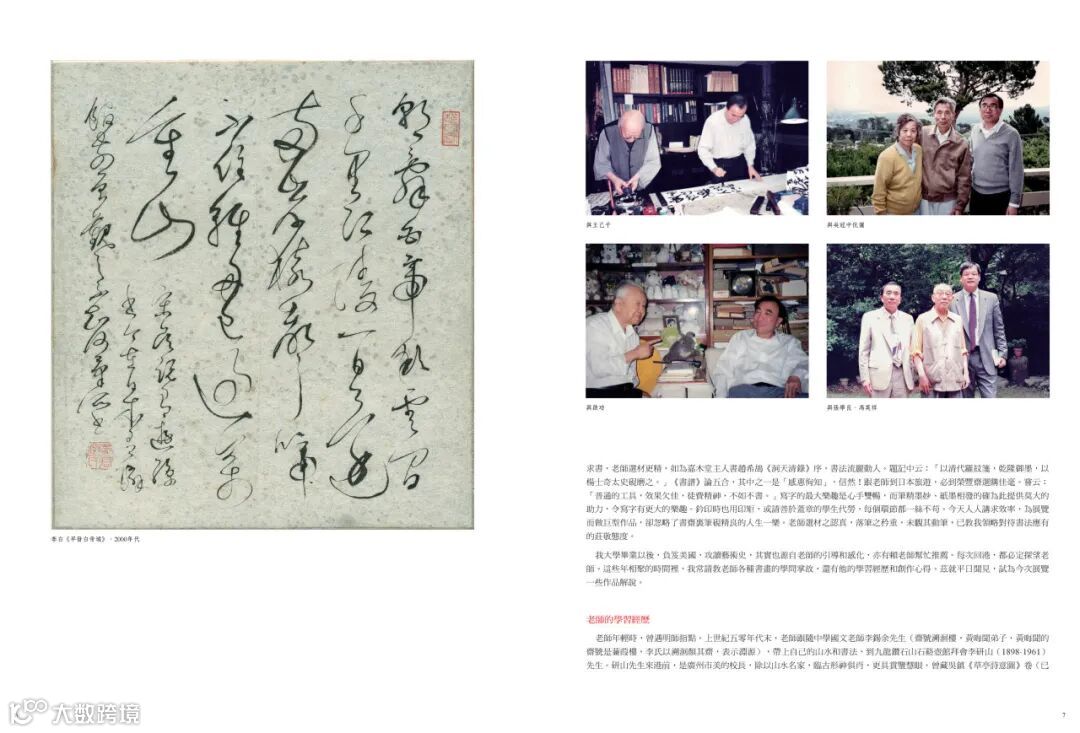 朝辭白帝彩雲間
千里江陵一日還
兩岸猿聲啼
不住輕舟已過萬
重山
李白《早發白帝城》，2000年代
與王己千
與吳冠中伉儷
與啟功
與張學良、馮英祥
求書，老師選材更精，如為嘉木堂主人書趙希鵠《洞天清錄》序，書法流麗動人。題記中云：「以清代羅紋箋，乾隆御墨，以
楊士奇太史硯磨之。」《書譜》論五合，其中之一是「感惠徇知」，信然！跟老師到日本旅遊，必到榮豐齋選購佳毫。嘗云：
「普通的工具，效果欠佳，徒費精神，不如不書。」寫字的最大樂趣是心手雙暢，而筆精墨妙、紙墨相發的確為此提供莫大的
助力，令寫字有更大的樂趣。鈐印時也用印矩，或請善於蓋章的學生代勞，每個環節都一絲不苟。今天人人講求效率，為展覽
而做巨型作品，卻忽略了書齋裏筆硯精良的人生一樂。老師選材之認真，落筆之矜重，未觀其動筆，已教我領略對待書法應有
的莊敬態度。
我大學畢業以後，負笈美國，攻讀藝術史，其實也源自老師的引導和感化，亦有賴老師幫忙推薦。每次回港，都必定探望老
師。這些年相聚的時間裡，我常請教老師各種書畫的學問掌故，還有他的學習經歷和創作心得。茲就平日聞見，試為今次展覽
一些作品解說。
老師的學習經歷
老師年輕時，曾遇明師指點。上世紀五零年代末，老師跟隨中學國文老師李錫余先生（齋號溯洄樓，黃晦聞弟子，黃晦聞的
齋號是蒹葭樓，李氏以溯洄顏其齋，表示淵源），帶上自己的山水和書法，到九龍鑽石山石谿壺館拜會李研山（1898-1961）
先生。研山先生來港前，是廣州市美的校長，除以山水名家，臨古形神俱肖，更具賞鑒慧眼。曾藏吳鎮《草亭詩意圖》卷（已
7
大数跨境